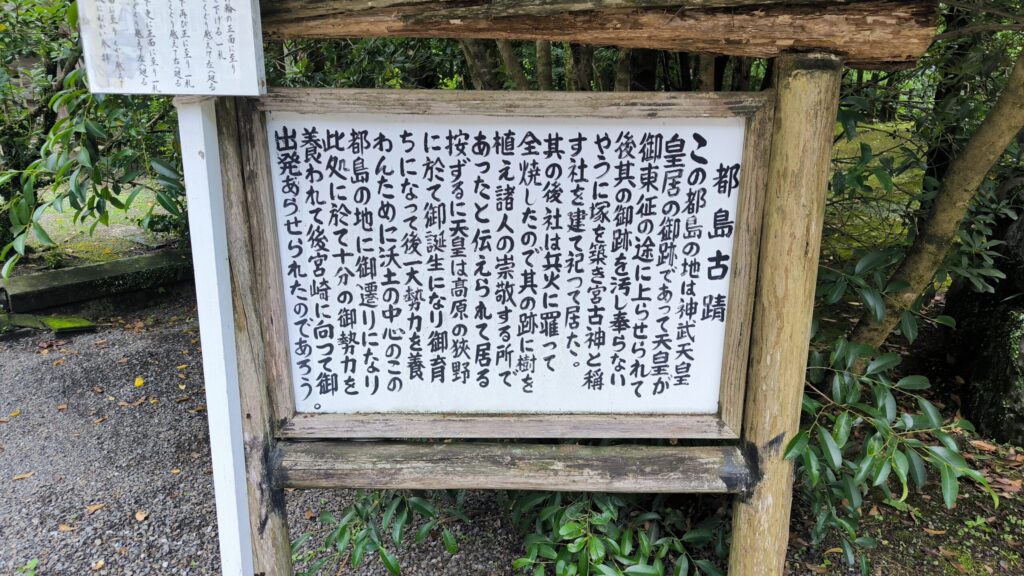 都島古蹟
この都島の地は神武天皇
皇居の御跡であって天皇が
御東征の途に上らせられて
後其の御跡を汚し奉らない
やうに塚を築き宮古神と稱
す社を建て祀って居た。
其の後社は兵火に罹って
全焼したので其の跡に樹を
植え諸人の崇敬する所で
あったと伝えられて居る
按ずるに天皇は高原の狹野
に於て御誕生になり御育
ちになって後一大勢力を養
わんために沃土の中心のこの
都島の地に御遷りになり
此処に於て十分の御勢力を
養われて後宮崎に向つて御
出発あらせられたのであろう。
の正面に至り
下げる 一礼
くぐり越え左へ廻る
再び正に至り 一礼
くぐり越え右へ廻る